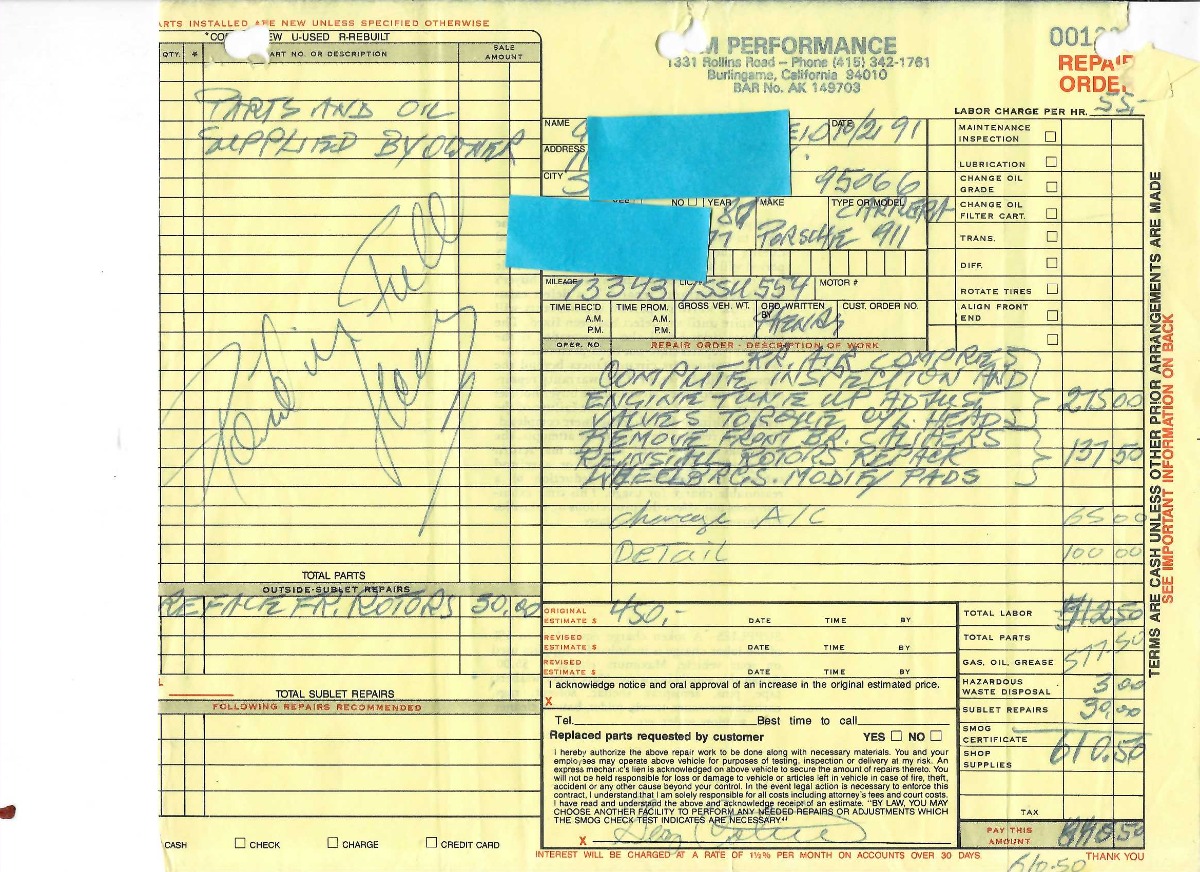 PARTS INSTALLED ARE NEW UNLESS SPECIFIED OTHERWISE
U-USED R-REBUILT
QTY. * PART NO. OR DESCRIPTION SALE AMOUNT
PARTS AND OIL
SUPPLIED BY OWNER
Paid in Full
Henry
TOTAL PARTS
OUTSIDE-SUBLET REPAIRS
REFACE FR. ROTORS 30,00
TOTAL SUBLET REPAIRS
FOLLOWING REPAIRS RECOMMENDED
CASH CHECK CHARGE CREDIT CARD
M PERFORMANCE
1331 Rollins Road – Phone (415) 342-1761
Burlingame, California 94010
BAR No. AK 149703
REPAIR
ORDER
LABOR CHARGE PER HR. 55,-
NAME DATE 10/2/91
ADDRESS
CITY 95066
NO YEAR 87 MAKE TYPE OR MODEL CARRERA
PORSCHE 911
MILEAGE 73343 LIC. 1SSU554 MOTOR #
TIME REC'D A.M. P.M. TIME PROM. A.M. P.M. GROSS VEH. WT. ORD. WRITTEN BY HENRY CUST. ORDER NO.
OPER. NO. REPAIR ORDER - DESCRIPTION OF WORK
RR. AIR COMPRES
COMPLETE INSPECTION AND
ENGINE TUNE UP ADJUST 275 00
VALVES TORQUE CYL. HEADS
REMOVE FRONT BR. CALIPERS
REINSTALL ROTORS REPACK 137 50
WHEELBRGS. MODIFY PADS
charge A/C 65 00
DETAIL 100 00
MAINTENANCE INSPECTION
LUBRICATION
CHANGE OIL GRADE
CHANGE OIL FILTER CART.
TRANS.
DIFF.
ROTATE TIRES
ALIGN FRONT END
TERMS ARE CASH UNLESS OTHER PRIOR ARRANGEMENTS ARE MADE
SEE IMPORTANT INFORMATION ON BACK
ORIGINAL ESTIMATE $ 450,- DATE TIME BY
REVISED ESTIMATE $ DATE TIME BY
REVISED ESTIMATE $ DATE TIME BY
I acknowledge notice and oral approval of an increase in the original estimated price.
X
Tel. Best time to call
Replaced parts requested by customer YES NO
I hereby authorize the above repair work to be done along with necessary materials. You and your
employes may operate above vehicle for purposes of testing, inspection or delivery at my risk. An
express mechanic's lien is acknowledged on above vehicle to secure the amount of repairs thereto. You
will not be held responsible for loss or damage to vehicle or articles left in vehicle in case of fire, theft,
accident or any other cause beyond your control. In the event legal action is necessary to enforce this
contract, I understand that I am solely responsible for all costs including attorney's fees and court costs.
I have read and understand the above and acknowledge receipt of an estimate. "BY LAW, YOU MAY
CHOOSE ANOTHER FACILITY TO PERFORM ANY NEEDED REPAIRS OR ADJUSTMENTS WHICH
THE SMOG CHECK TEST INDICATES ARE NECESSARY."
X
INTEREST WILL BE CHARGED AT A RATE OF 1½% PER MONTH ON ACCOUNTS OVER 30 DAYS
TOTAL LABOR
TOTAL PARTS 577.50
GAS, OIL, GREASE
HAZARDOUS WASTE DISPOSAL 3 00
SUBLET REPAIRS 30,00
SMOG CERTIFICATE
SHOP SUPPLIES 610.50
TAX
PAY THIS AMOUNT
610.50
THANK YOU